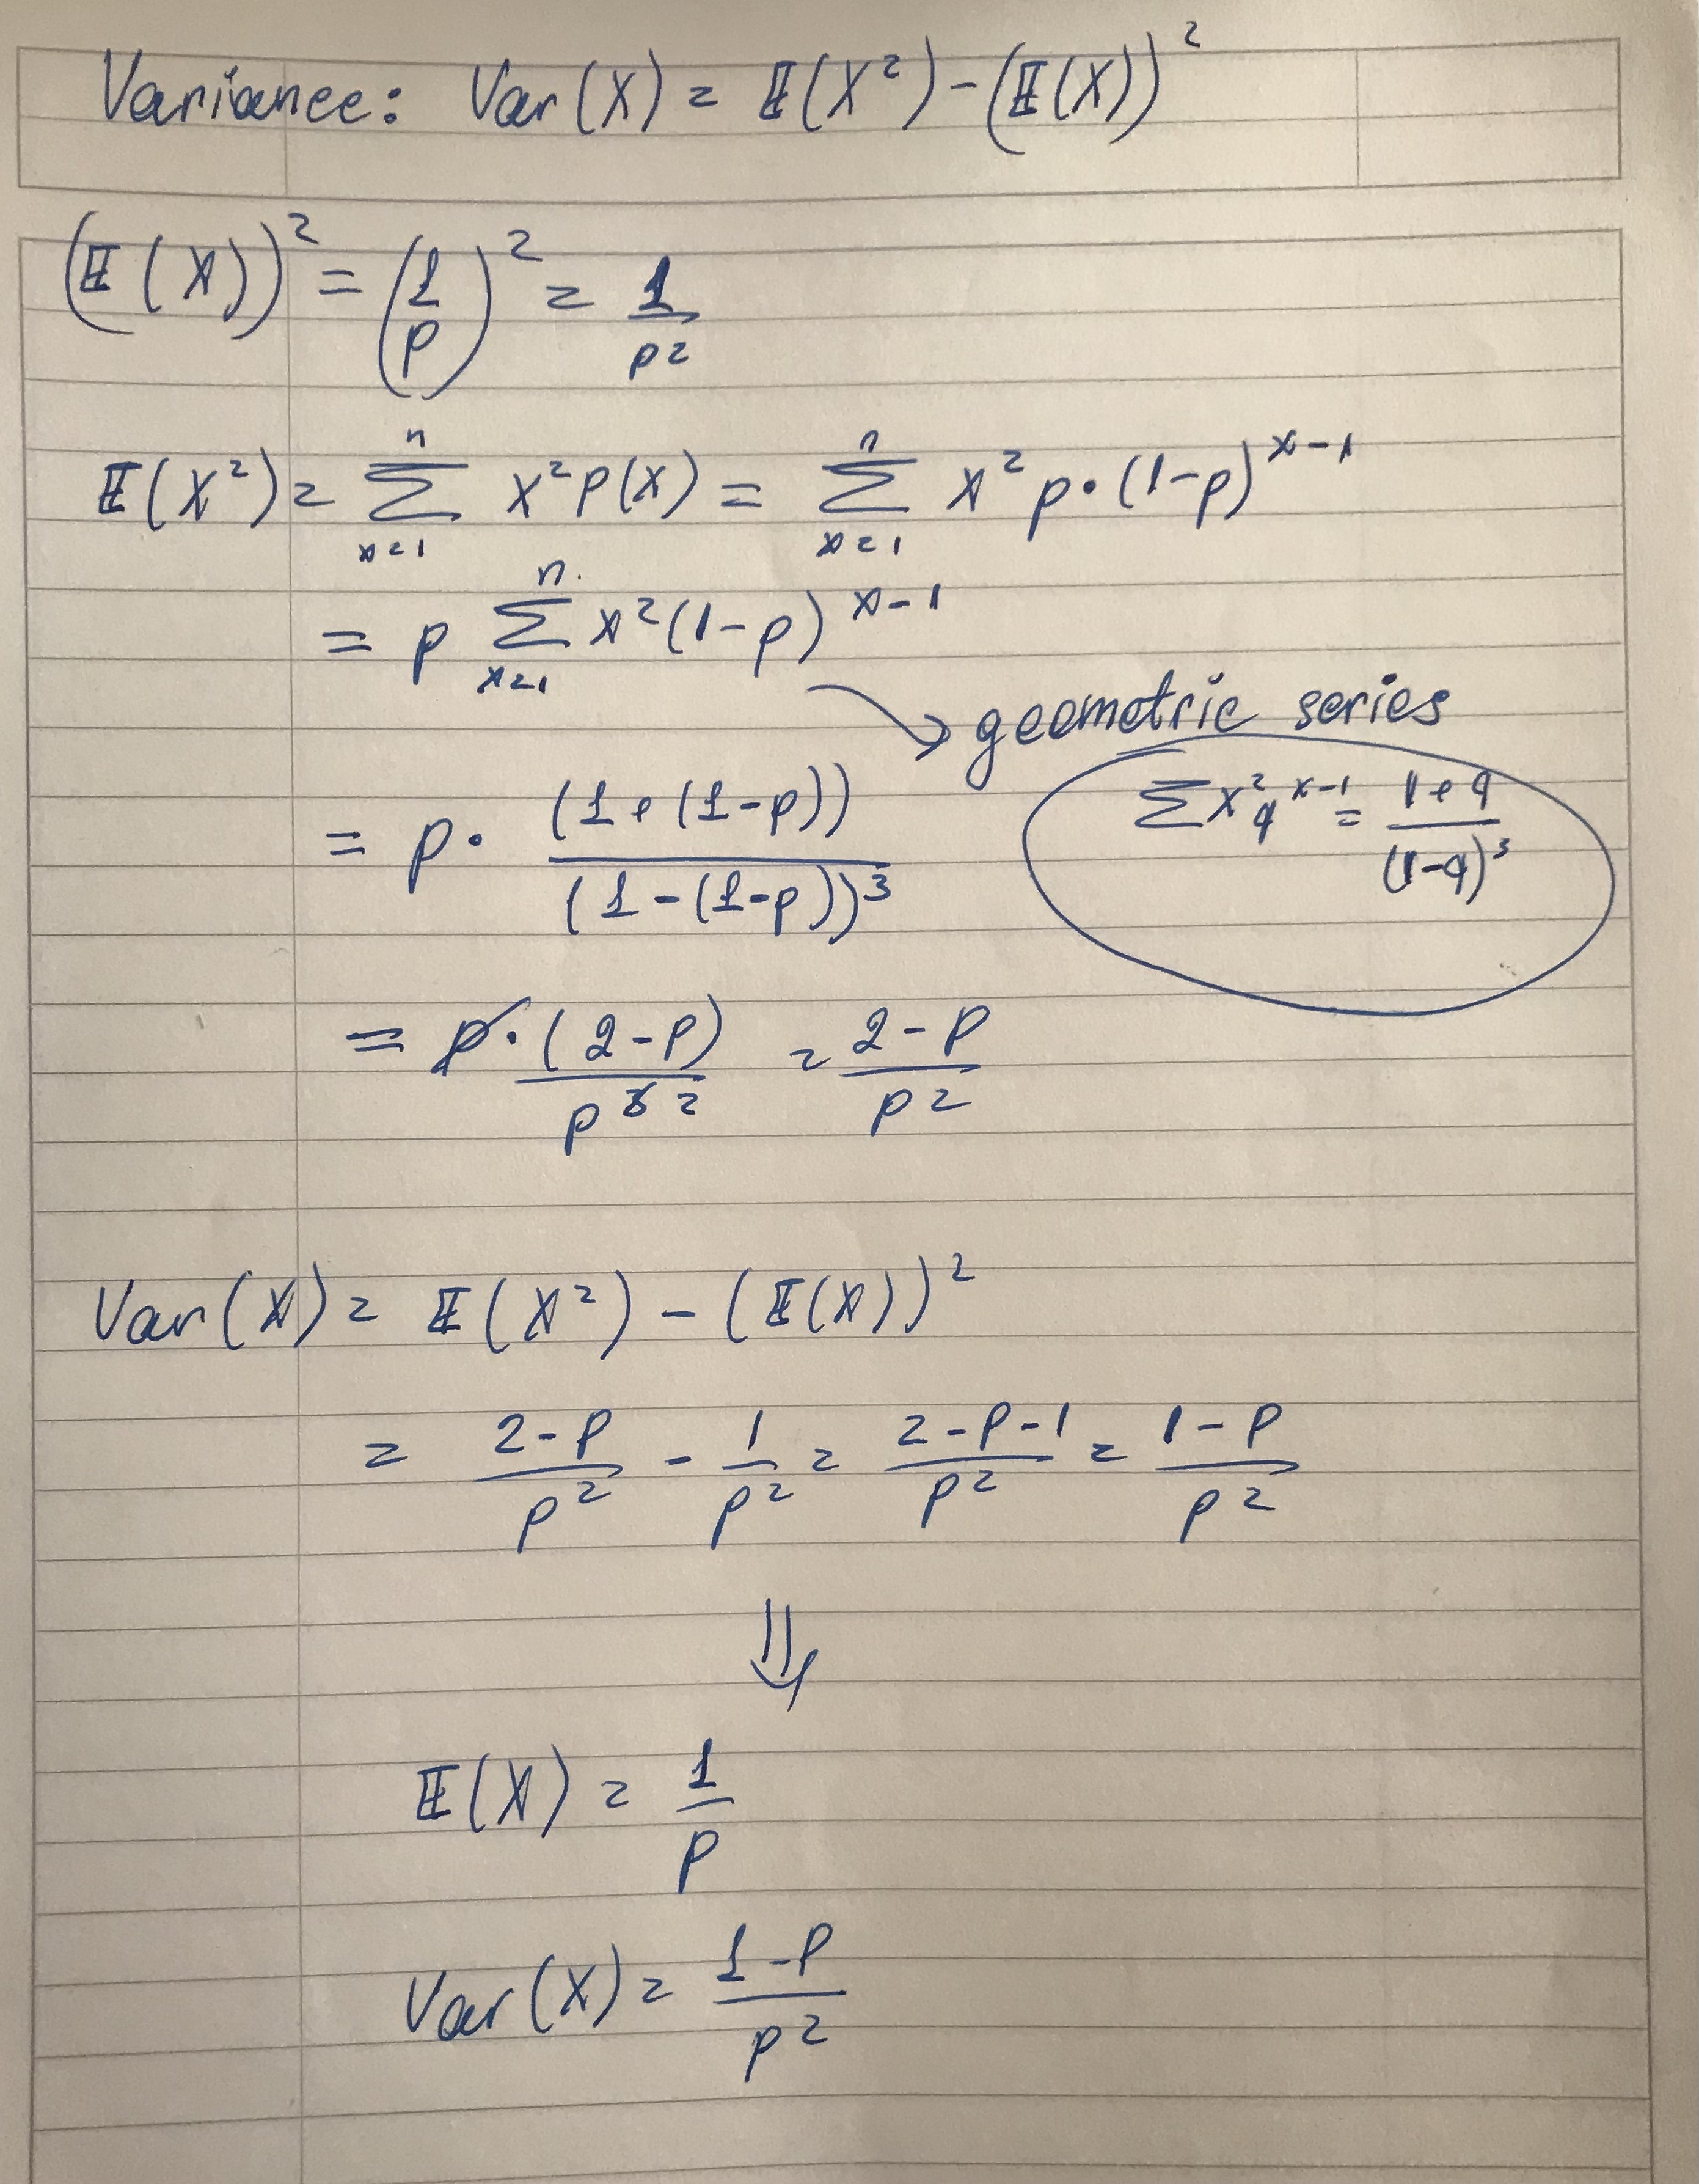 Variance: Var(X) = 𝔼(X²) - (𝔼(X))²
(𝔼(X))² = (1/p)² = 1/p²
𝔼(X²) = ∑_{x=1}^{n} x² P(x) = ∑_{x=1}^{n} x² p·(1-p)^{x-1}
= p ∑_{x=1}^{n} x² (1-p)^{x-1}
→ geometric series
∑ x² q^{x-1} = (1+q)/(1-q)³
= p · (1+(1-p))/(1-(1-p))³
= p · (2-p)/p³ ² = (2-p)/p²
Var(X) = 𝔼(X²) - (𝔼(X))²
= (2-p)/p² - 1/p² = (2-p-1)/p² = (1-p)/p²
⇓
𝔼(X) = 1/p
Var(X) = (1-p)/p²